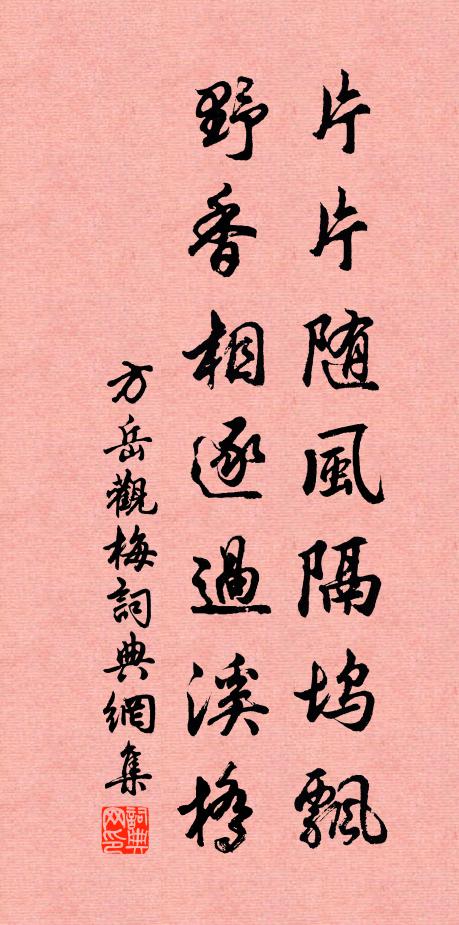 片片随風隔坞飄
野香相逐過溪橋
方岳觀梅詞典網集
詞典网印